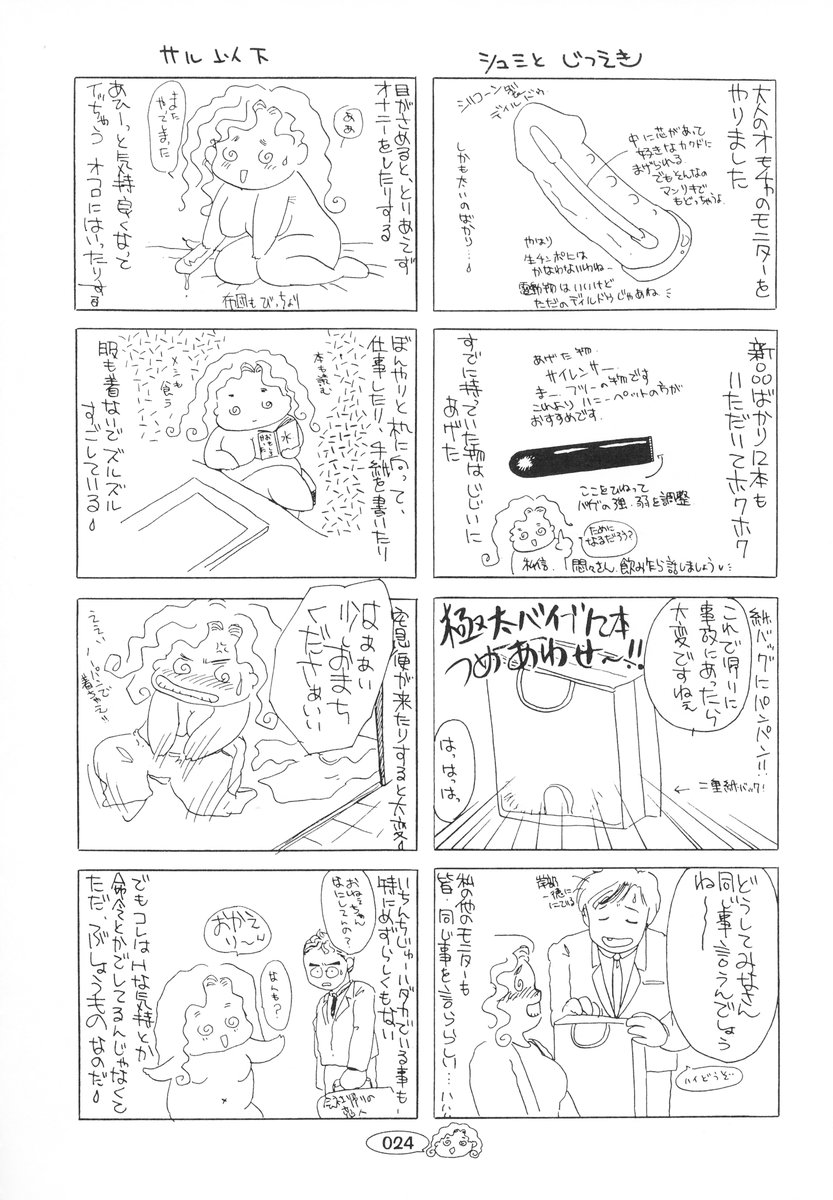 シュミと じつえき
大人のオモチャのモニターを
やりました
シリコーンゴム
ディルドウ
中に芯があって
好きなカクドに
まげられる
でもそんなの
マンリキで
もどっちゃうよ
しかも太いのばかり…
やはり
生チンポには
かなわないわねー
電動物はいいけど
ただのディルドゥじゃあね…
新品ばかり12本も
いただいてホクホク
あげた物
サイレンサー
まー、フツーの物です
これより ハニーペットの方が
おすすめです。
すでに持っていた物はじじいに
あげた
ここをひねって
バイブの強・弱を調整
ために
なるだろう?
私信・「悶々さん、飲み乍ら話しましょう
紙バッグにパンパン!!
これで帰りに
事故にあったら
大変ですねぇ
極太バイブ12本
つめあわせ〜!!
はっはっは
←二重紙バック!
どうしてみなさん
同じ事言うんでしょう
ねー
私の他のモニターも
皆、同じ事を言うらしい…
ハイどうぞ…
サル以下
目がさめると、とりあえず
オナニーをしたりする
ああ
また
やってしまった
あひーっと気持良くなって
イッちゃう オフロにはいったりする
布団もびっちょり
ぼんやりと机に向って、
仕事したり、手紙を書いたり
本も読む
メシも
食う
服も着ないでズルズル
すごしている
水
宅急便が来たりすると大変
はぁぁい
少しおまち
くださぁいい
いちんちじゅーハダカでいる事も
特にめずらしくもない
おねーちゃん
なにしてんの?
会社帰りの
おかえ
り〜
なんも?
でもコレはHな気持とか
命令とかでしてるんじゃなくて
ただ、ぶしょうものなのだ
024